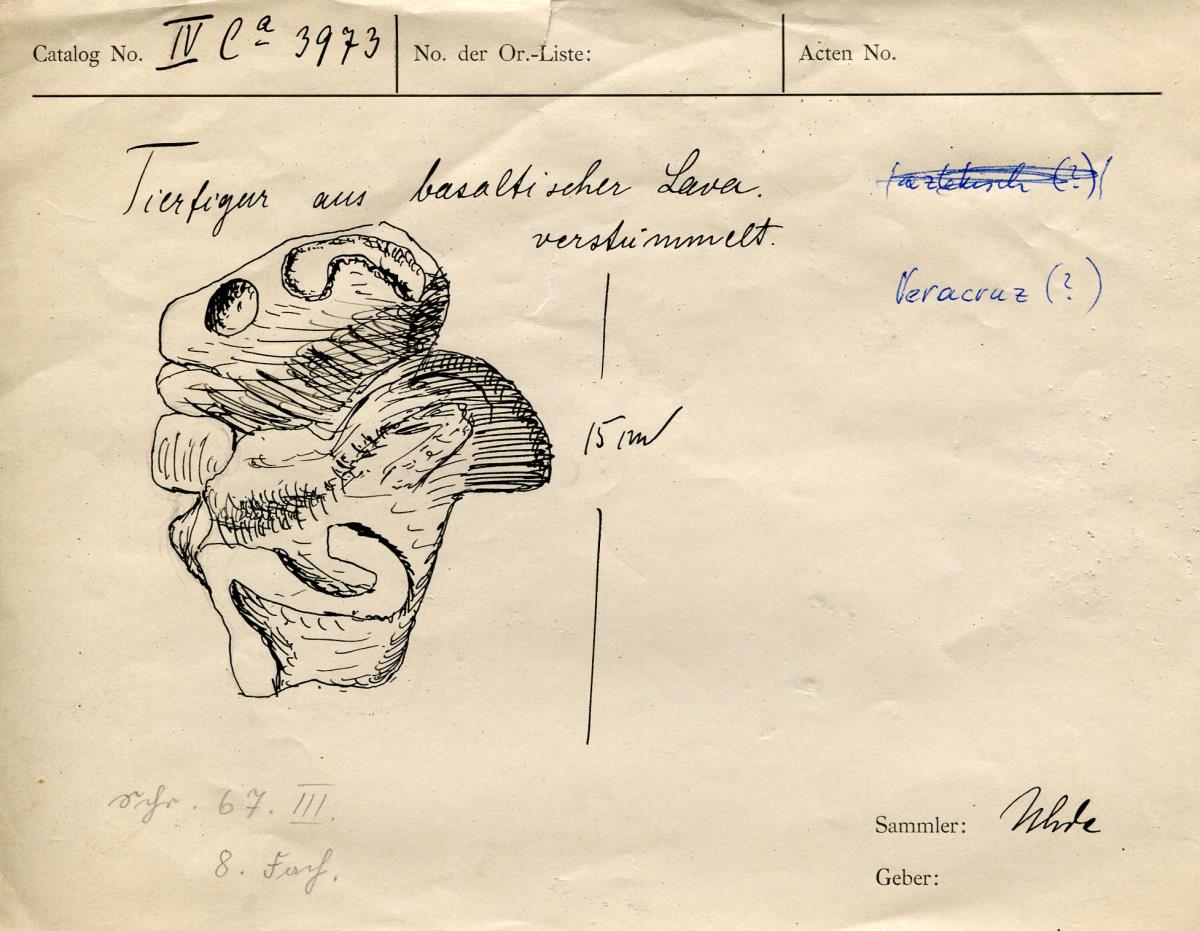 Catalog No. IV Ca 3973 No. der Or.-Liste: Acten No.
Tierfigur aus basaltischer Lava.
verstümmelt.
(aztekisch (?))
Veracruz (?)
15 cm
Schr. 67. III.
8. Fach.
Sammler: Uhde
Geber: